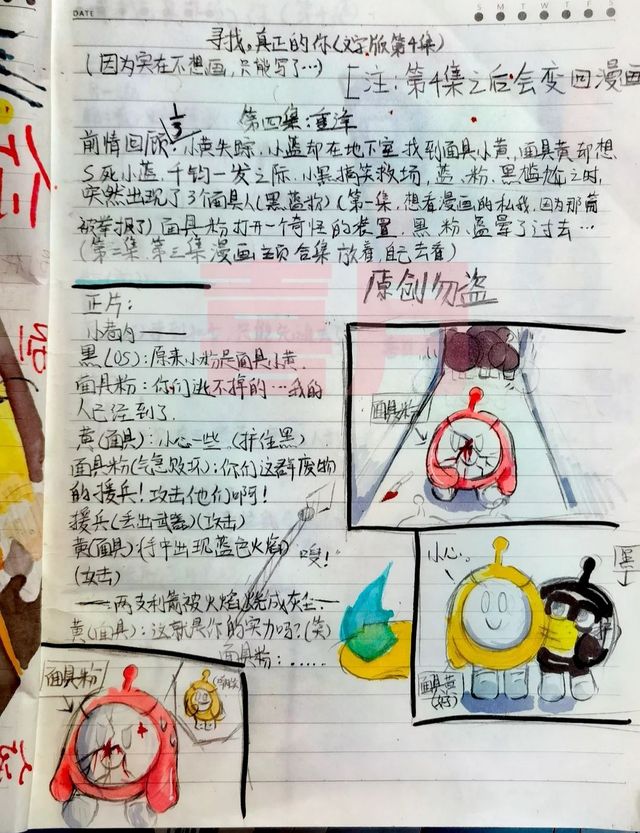 DATE
S M T W T F S
寻找。真正的你(文字版第4集)
(因为实在不想画,只能写了…)
[注:第4集之后会变回漫画
1/3
第四集:重泽
前情回顾:小黄失踪,小蓝却在地下室找到面具小黄,面具黄却想
S死小蓝,千钧一发之际,小黑搞笑救场,蓝、粉、黑尴尬之时,
突然出现了3个面具人(黑蓝粉)(第一集,想看漫画的私我,因为那篇
被举报了)面具粉打开一个奇怪的装置,黑、粉、蓝晕了过去…
(第二集.第三集漫画主页合集放着,自己去看)
原创勿盗
正片:
小巷内——
黑(OS):原来小粉是面具小黄.
面具粉:你们逃不掉的…我的
人已经到了.
黄(面具):小心一些(护住黑)
面具粉(气急败坏):你们这群废物
的援兵!攻击他们啊!
援兵(丢出武器)(攻击)
黄(面具)(手中出现蓝色火焰)
(攻击)
嗖!
——两支利箭被火焰烧成灰尘——
黄(面具):这就是你的实力吗?(笑)
面具粉:……
面具粉
小心。
黑
面具黄
面具粉